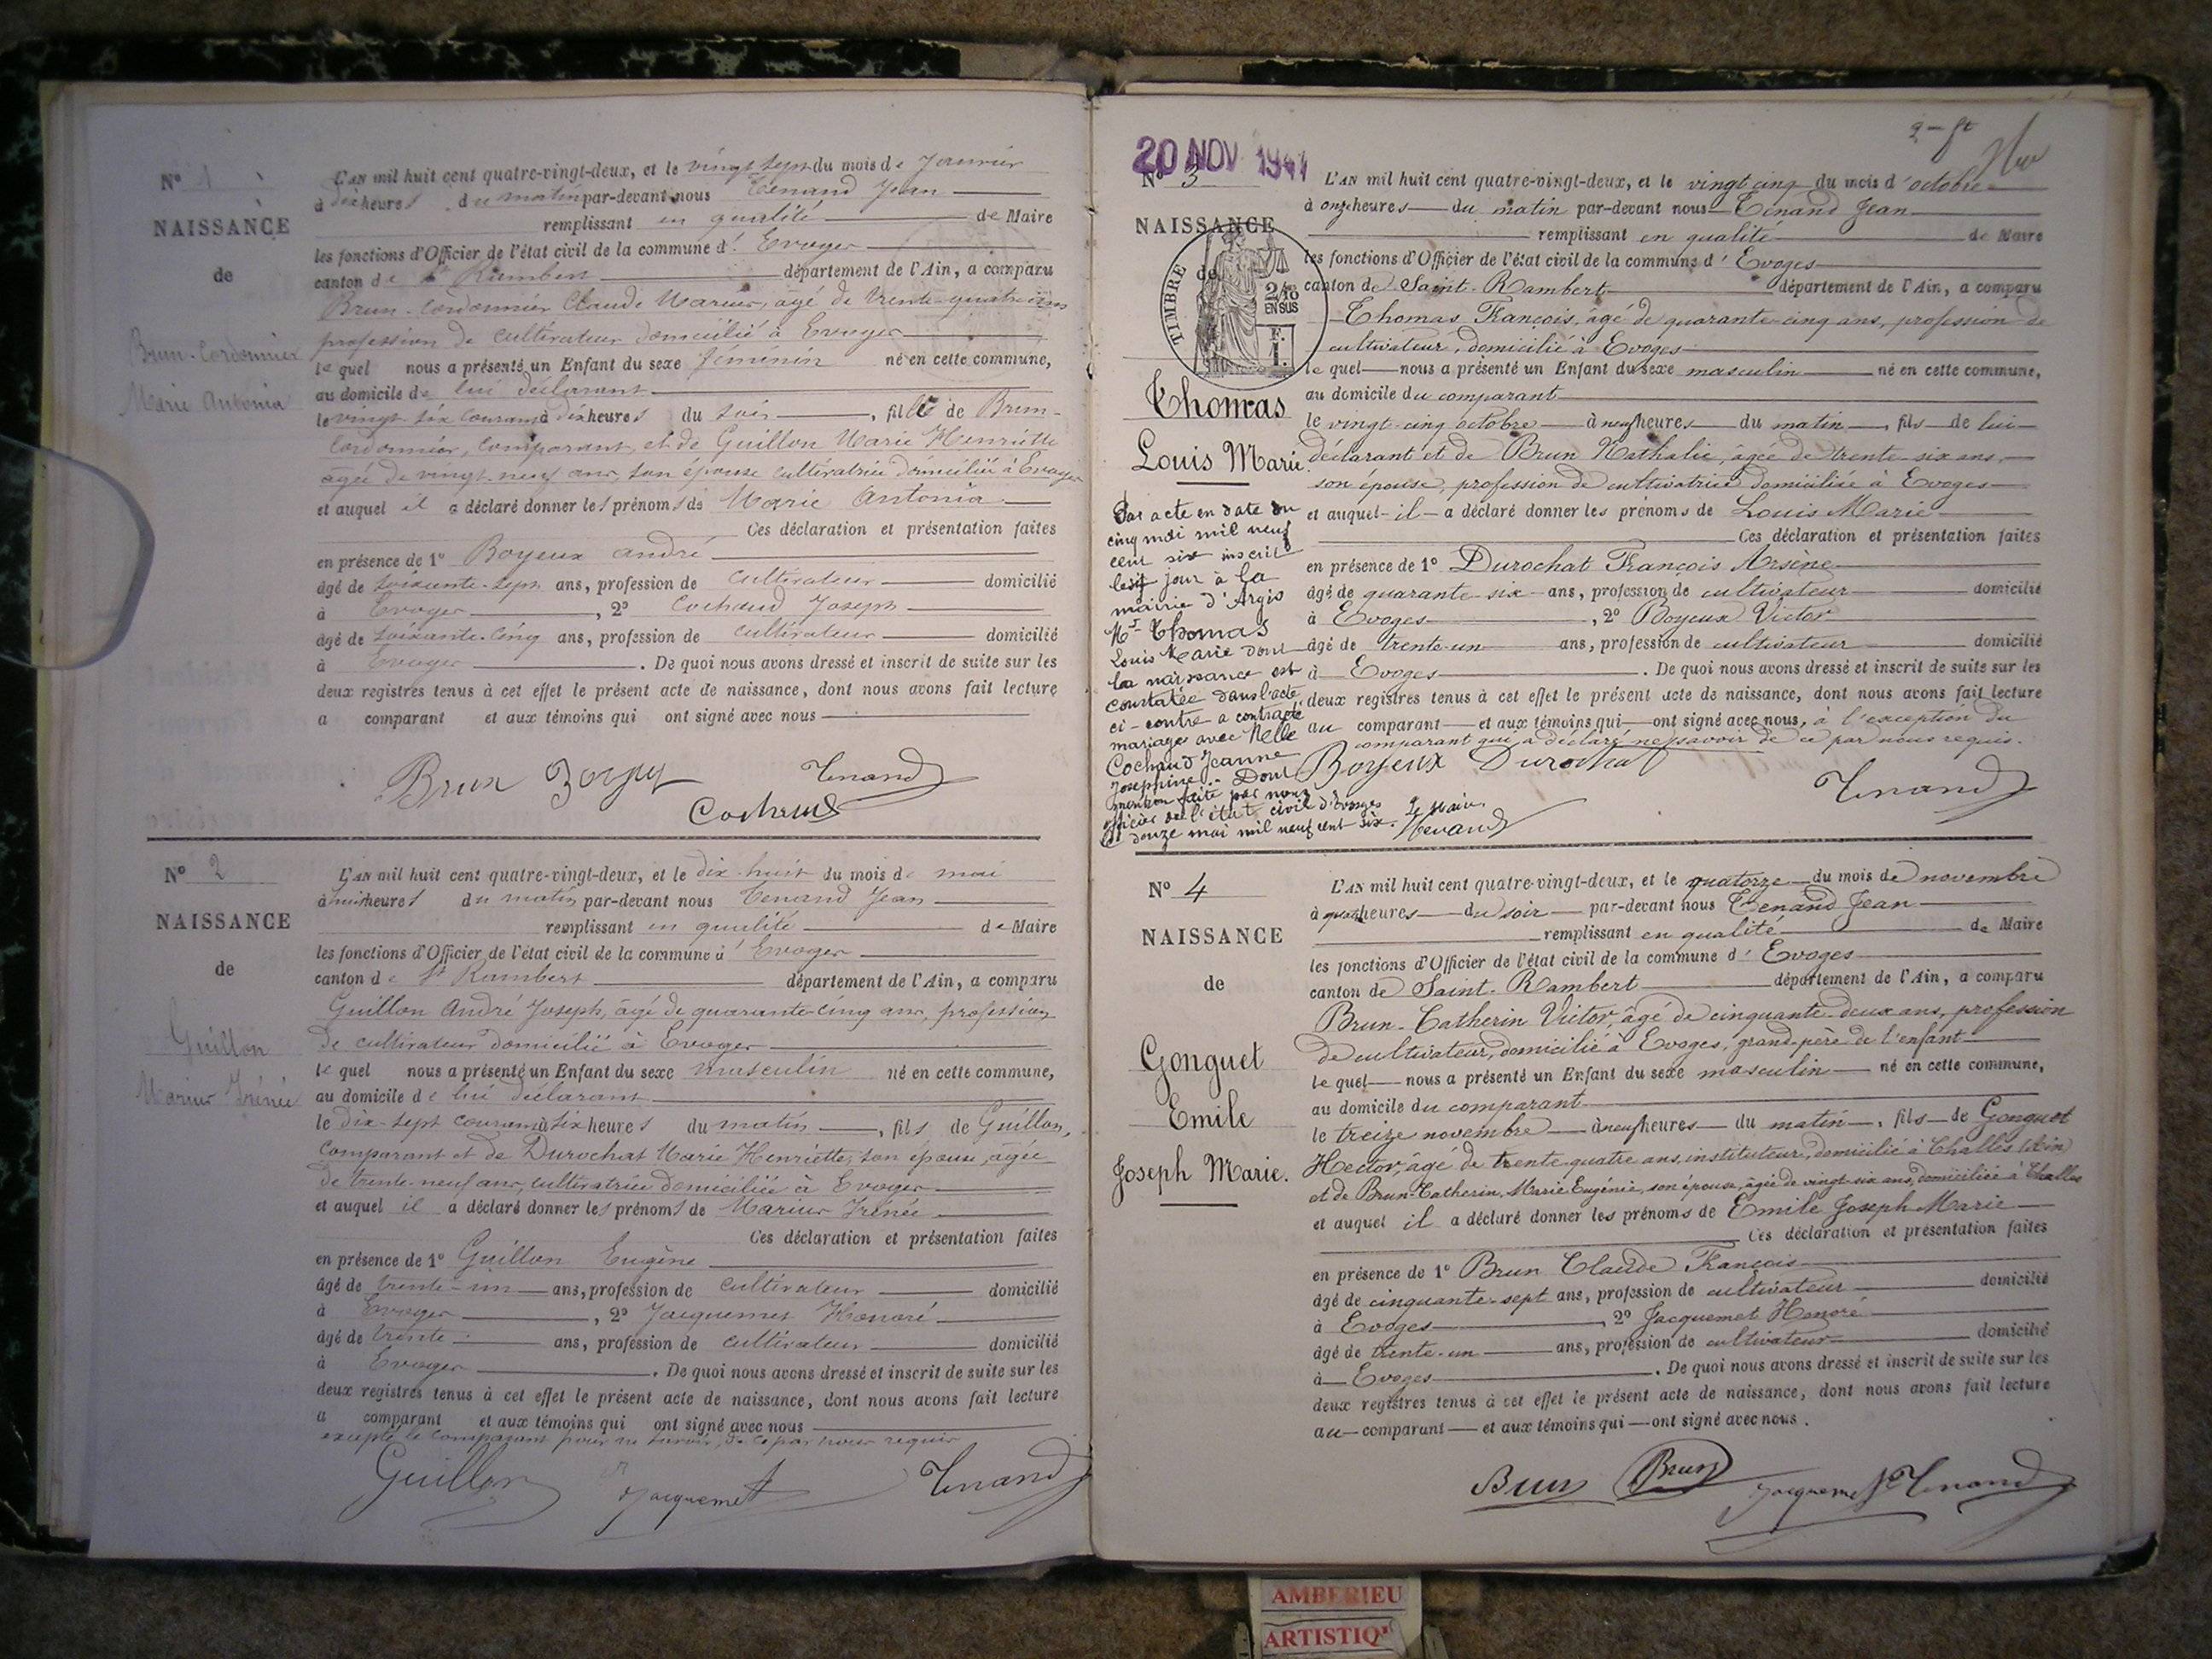 N° 1
NAISSANCE
de
Brun-Cordonnier
Marie Antonia
L'AN mil huit cent quatre-vingt-deux, et le vingt sept du mois de Janvier
à dix heures du matin par-devant nous Tenand Jean
remplissant en qualité de Maire
les fonctions d'Officier de l'état civil de la commune d' Evoges
canton de St Rambert département de l'Ain, a comparu
Brun-Cordonnier Claude Marius, âgé de trente-quatre ans
profession de cultivateur domicilié à Evoges
le quel nous a présenté un Enfant du sexe féminin né en cette commune,
au domicile de lui déclarant
le vingt six courant à dix heures du soir, fille de Brun-
Cordonnier, comparant et de Guillon Marie Henriette
âgée de vingt-neuf ans, son épouse cultivatrice domiciliée à Evoges
et auquel il a déclaré donner les prénoms de Marie Antonia
Ces déclaration et présentation faites
en présence de 1° Boyeux André
âgé de soixante-sept ans, profession de cultivateur domicilié
à Evoges, 2° Cochaud Joseph
âgé de soixante-cinq ans, profession de cultivateur domicilié
à Evoges. De quoi nous avons dressé et inscrit de suite sur les
deux registres tenus à cet effet le présent acte de naissance, dont nous avons fait lecture
a comparant et aux témoins qui ont signé avec nous
Brun Tenand
Cochaud
N° 2
NAISSANCE
de
Guillon
Marius Irénée
L'AN mil huit cent quatre-vingt-deux, et le dix-huit du mois de mai
à huit heures du matin par-devant nous Tenand Jean
remplissant en qualité de Maire
les fonctions d'Officier de l'état civil de la commune d' Evoges
canton de St Rambert département de l'Ain, a comparu
Guillon André Joseph, âgé de quarante-cinq ans, profession
de cultivateur domicilié à Evoges
le quel nous a présenté un Enfant du sexe masculin né en cette commune,
au domicile de lui déclarant
le dix-sept courant à six heures du matin, fils de Guillon,
comparant et de Durochat Marie Henriette, son épouse, âgée
de trente-neuf ans, cultivatrice domiciliée à Evoges
et auquel il a déclaré donner les prénoms de Marius Irénée
Ces déclaration et présentation faites
en présence de 1° Guillon Eugène
âgé de trente-un ans, profession de cultivateur domicilié
à Evoges, 2° Jacquemet Honoré
âgé de trente ans, profession de cultivateur domicilié
à Evoges. De quoi nous avons dressé et inscrit de suite sur les
deux registres tenus à cet effet le présent acte de naissance, dont nous avons fait lecture
a comparant et aux témoins qui ont signé avec nous
excepté le comparant pour ne savoir, de ce par nous requis
Guillon Jacquemet Tenand
20 NOV 1941
N° 3
NAISSANCE
de
TIMBRE
2/10
EN SUS
F.
1.
Thomas
Louis Marie.
Par acte en date du
cinq mai mil neuf
cent six inscrit
le sit jour à la
mairie d'Argis
Mr Thomas
Louis Marie dont
la naissance est
constatée dans l'acte
ci-contre a contracté
mariage avec Melle
Cochaud Jeanne
Josephine. Dont
mention faite par nous
officier de l'état civil d'Evoges
le douze mai mil neuf cent six. Le Maire.
Tenand
L'AN mil huit cent quatre-vingt-deux, et le vingt cinq du mois d'octobre
à onze heures du matin par-devant nous Tenand Jean
remplissant en qualité de Maire
les fonctions d'Officier de l'état civil de la commune d' Evoges
canton de Saint-Rambert département de l'Ain, a comparu
Thomas François, âgé de quarante-cinq ans, profession de
cultivateur, domicilié à Evoges
le quel nous a présenté un Enfant du sexe masculin né en cette commune,
au domicile du comparant
le vingt-cinq octobre à neuf heures du matin, fils de lui
déclarant et de Brun Nathalie, âgée de trente-six ans,
son épouse, profession de cultivatrice domiciliée à Evoges
et auquel il a déclaré donner les prénoms de Louis Marie
Ces déclaration et présentation faites
en présence de 1° Durochat François Arsène
âgé de quarante-six ans, profession de cultivateur domicilié
à Evoges, 2° Boyeux Victor
âgé de trente-un ans, profession de cultivateur domicilié
à Evoges. De quoi nous avons dressé et inscrit de suite sur les
deux registres tenus à cet effet le présent acte de naissance, dont nous avons fait lecture
au comparant et aux témoins qui ont signé avec nous, à l'exception du
comparant qui a déclaré ne savoir de ce par nous requis.
Boyeux Durochat
Tenand
N° 4
NAISSANCE
de
Gonguet
Emile
Joseph Marie.
L'AN mil huit cent quatre-vingt-deux, et le quatorze du mois de novembre
à quatre heures du soir par-devant nous Tenand Jean
remplissant en qualité de Maire
les fonctions d'Officier de l'état civil de la commune d' Evoges
canton de Saint-Rambert département de l'Ain, a comparu
Brun-Catherin Victor, âgé de cinquante-deux ans, profession
de cultivateur, domicilié à Evoges, grand-père de l'enfant
le quel nous a présenté un Enfant du sexe masculin né en cette commune,
au domicile du comparant
le treize novembre à neuf heures du matin, fils de Gonguet
Hector, âgé de trente-quatre ans, instituteur, domicilié à Challes (Ain)
et de Brun-Catherin, Marie Eugénie, son épouse, âgée de vingt-six ans, domiciliée à Challes
et auquel il a déclaré donner les prénoms de Emile Joseph Marie
Ces déclaration et présentation faites
en présence de 1° Brun Claude François
âgé de cinquante-sept ans, profession de cultivateur domicilié
à Evoges, 2° Jacquemet Honoré
âgé de trente-un ans, profession de cultivateur domicilié
à Evoges. De quoi nous avons dressé et inscrit de suite sur les
deux registres tenus à cet effet le présent acte de naissance, dont nous avons fait lecture
au comparant et aux témoins qui ont signé avec nous.
Brun Brun Jacquemet Tenand
AMBERIEU
ARTISTIQ